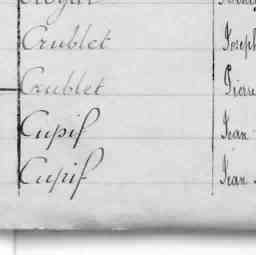 Crublet Joseph
Crublet Pierre
Cupif Jean
Cupif Jean